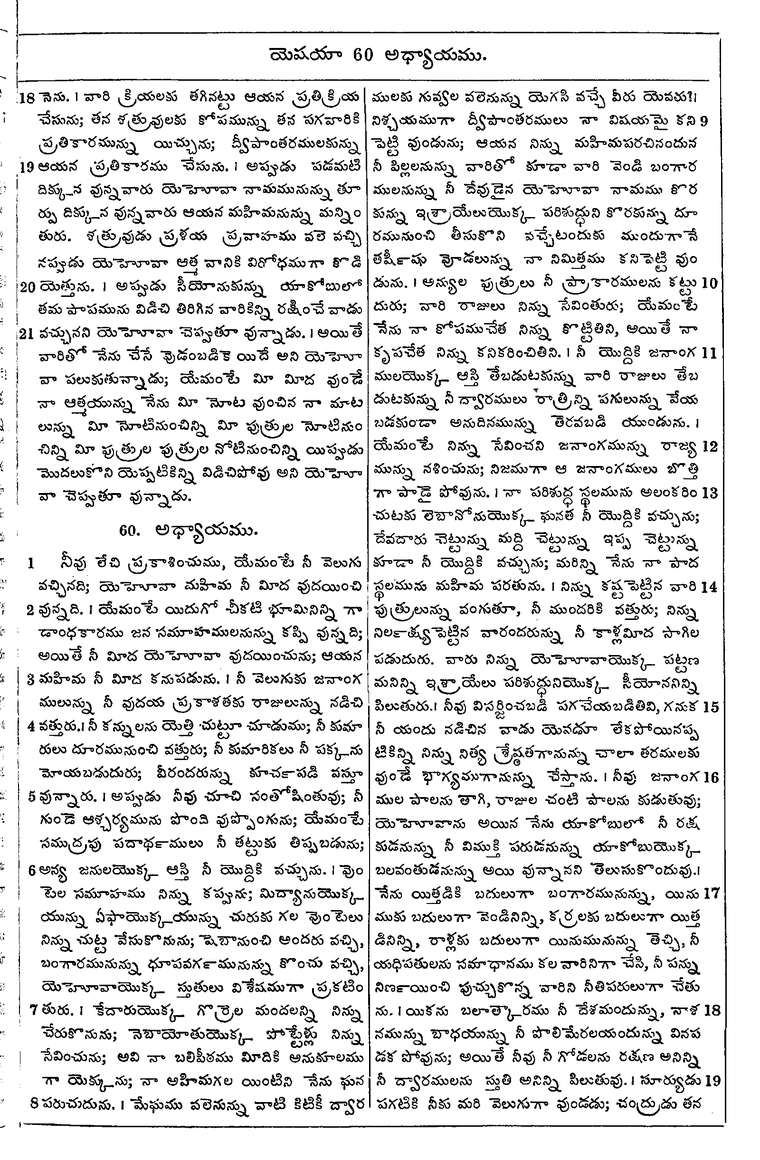 యెషయా 60 అధ్యాయము.
18 నెను. । వారి క్రియలకు తగినట్టు ఆయన ప్రతిక్రియ
చేసును; తన శత్రువులకు కోపమున్ను తన పగవారికి
ప్రతికారమున్ను యిచ్చును; ద్వీపాంతరములకున్ను
19 ఆయన ప్రతికారము చేసును. । అప్పుడు పడమటి
దిక్కున వున్నవారు యెహోవా నామమునున్ను తూ
ర్పు దిక్కున వున్నవారు ఆయన మహిమనున్ను మన్నిం
తురు. శత్రువుడు ప్రళయ ప్రవాహము వలె వచ్చి
నప్పుడు యెహోవా ఆత్మ వానికి విరోధముగా కొడి
20 యెత్తును. । అప్పుడు సీయోనుకున్ను యాకోబులో
తమ పాపమును విడిచి తిరిగిన వారికిన్ని రక్షించే వాడు
21 వచ్చునని యెహోవా చెప్పుతూ వున్నాడు. । అయితే
వారితో నేను చేసే వొడంబడికె యిదే అని యెహో
వా పలుకుతున్నాడు; యేమంటే మీ మీద వుండే
నా ఆత్మయున్ను నేను మీ నోట వుంచిన నా మాట
లున్ను మీ నోటినుంచిన్ని మీ పుత్రుల నోటినుం
చిన్ని మీ పుత్రుల పుత్రుల నోటినుంచిన్ని యిప్పుడు
మొదలుకొని యెప్పటికిన్ని విడిచిపోవు అని యెహో
వా చెప్పుతూ వున్నాడు.
60. అధ్యాయము.
1 నీవు లేచి ప్రకాశించుము, యేమంటే నీ వెలుగు
వచ్చినది; యెహోవా మహిమ నీ మీద వుదయించి
2 వున్నది. । యేమంటే యిదుగో చీకటి భూమినిన్ని గా
ఢాంధకారము జన సమూహములనున్ను కప్పి వున్నది;
అయితే నీ మీద యెహోవా వుదయించును; ఆయన
3 మహిమ నీ మీద కనుపడును. । నీ వెలుగుకు జనాంగ
ములున్ను నీ వుదయ ప్రకాశతకు రాజులున్ను నడిచి
4 వత్తురు. । నీ కన్నులను యెత్తి చుట్టూ చూడుము; నీ కుమా
రులు దూరమునుంచి వత్తురు; నీ కుమారికలు నీ పక్కను
మోయబడుదురు; వీరందరున్ను కూచర్కపడి వస్తూ
5 వున్నారు. । అప్పుడు నీవు చూచి సంతోషింతువు; నీ
గుండె ఆశ్చర్యమును పొంది వుప్పొంగును; యేమంటే
సముద్రపు పదార్థములు నీ తట్టుకు తిప్పబడును;
6 అన్య జనులయొక్క ఆస్తి నీ యొద్దికి వచ్చును. । వొం
టెల సమూహము నిన్ను కప్పును; మిద్యానుయొక్క
యున్ను ఏఫాయొక్కయున్ను చురుకు గల వొంటెలు
నిన్ను చుట్ట వేసుకొనును; షెబానుంచి అందరు వచ్చి,
బంగారమునున్ను ధూపవర్గమునున్ను కొంచు వచ్చి,
యెహోవాయొక్క స్తుతులు విశేషముగా ప్రకటిం
7 తురు. । కేదారుయొక్క గొర్రెల మందలన్ని నిన్ను
చేరుకొనును; నెబాయోతుయొక్క పొట్టేళ్లు నిన్ను
సేవించును; అవి నా బలిపీఠము మీదికి అనుకూలము
గా యెక్కును; నా అహిమగల యింటిని నేను ఘన
8 పరుచుదును. । మేఘము వలెనున్ను వాటి కిటికీ ద్వార
ములకు గువ్వల వలెనున్ను యెగసి వచ్చే వీరు యెవరు?।
నిశ్చయముగా ద్వీపాంతరములు నా విషయమై కని 9
పెట్టి వుండును; ఆయన నిన్ను మహిమపరచినందున
నీ పిల్లలనున్ను వారితో కూడా వారి వెండి బంగార
ములనున్ను నీ దేవుడైన యెహోవా నామము కొర
కున్ను ఇశ్రాయేలుయొక్క పరిశుద్ధుని కొరకున్ను దూ
రమునుంచి తీసుకొని వచ్చేటందుకు ముందుగానే
తర్షీషు వోడలున్ను నా నిమిత్తము కనిపెట్టి వుం
డును. । అన్యుల పుత్రులు నీ ప్రాకారములను కట్టు 10
దురు; వారి రాజులు నిన్ను సేవింతురు; యేమంటే
నేను నా కోపముచేత నిన్ను కొట్టితిని, అయితే నా
కృపచేత నిన్ను కనికరించితిని. । నీ యొద్దికి జనాంగ 11
ములయొక్క ఆస్తి తేబడుటకున్ను వారి రాజులు తేబ
డుటకున్ను నీ ద్వారములు రాత్రిన్ని పగులున్ను వేయ
బడకుండా అనుదినమున్ను తెరవబడి యుండును. ।
యేమంటే నిన్ను సేవించని జనాంగమున్ను రాజ్య 12
మున్ను నశించును; నిజముగా ఆ జనాంగములు బొత్తి
గా పాడై పోవును. । నా పరిశుద్ధ స్థలమును అలంకరిం 13
చుటకు లెబానోనుయొక్క ఘనత నీ యొద్దికి వచ్చును;
దేవదారు చెట్టున్ను మద్ది చెట్టున్ను ఇప్ప చెట్టున్ను
కూడా నీ యొద్దికి వచ్చును; మరిన్ని నేను నా పాద
స్థలమును మహిమ పరతును. । నిన్ను కష్టపెట్టిన వారి 14
పుత్రులున్ను వంగుతూ, నీ ముందరికి వత్తురు; నిన్ను
నిలర్క్ష్యపెట్టిన వారందరున్ను నీ కాళ్లమీద సాగిల
పడుదురు. వారు నిన్ను యెహోవాయొక్క పట్టణ
మనిన్ని ఇశ్రాయేలు పరిశుద్ధునియొక్క సీయోననిన్ని
పిలుతురు. । నీవు విసర్జించబడి పగచేయబడితివి, గనుక 15
నీ యందు నడిచిన వాడు యెవడూ లేకపోయినప్ప
టికిన్ని నిన్ను నిత్య శ్రేష్ఠతగానున్ను చాలా తరములకు
వుండే భాగ్యముగానున్ను చేస్తాను. । నీవు జనాంగ 16
ముల పాలను తాగి, రాజుల చంటి పాలను కుడుతువు;
యెహోవాను అయిన నేను యాకోబులో నీ రక్ష
కుడనున్ను నీ విముక్తి పరుడనున్ను యాకోబుయొక్క
బలవంతుడనున్ను అయి వున్నానని తెలుసుకొందువు. ।
నేను యిత్తడికి బదులుగా బంగారమునున్ను, యిను 17
ముకు బదులుగా వెండినిన్ని, కర్రలకు బదులుగా యిత్త
డినిన్ని, రాళ్లకు బదులుగా యినుమునున్ను తెచ్చి, నీ
యధిపతులను సమాధానము కల వారినిగా చేసి, నీ పన్ను
నిర్ణయించి పుచ్చుకొన్న వారిని నీతిపరులుగా చేతు
ను. । యికను బలాత్కారము నీ దేశమందున్ను, నాశ 18
నమున్ను బాధయున్ను నీ పొలిమేరలయందున్ను వినప
డక పోవును; అయితే నీవు నీ గోడలను రక్షణ అనిన్ని
నీ ద్వారములను స్తుతి అనిన్ని పిలుతువు. । సూర్యుడు 19
పగటికి నీకు మరి వెలుగుగా వుండడు; చంద్రుడు తన